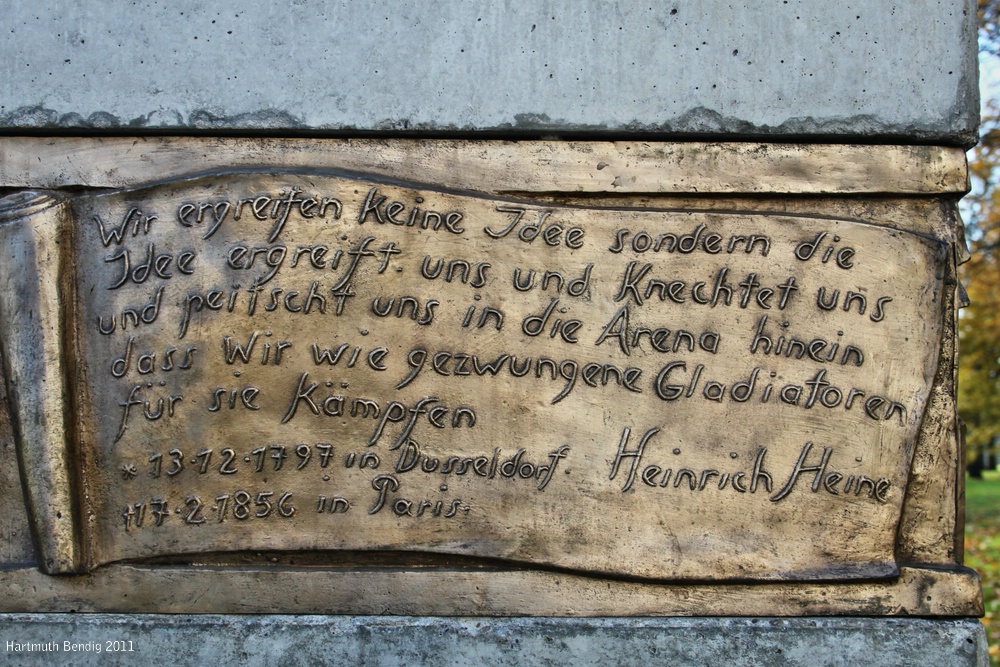 Wir ergreifen keine Idee sondern die
Idee ergreift. uns und Knechtet uns
und peitscht uns in die Arena hinein
dass Wir wie gezwungene Gladiatoren
für sie Kämpfen
* 13·12·1797 in Dusseldorf. Heinrich Heine
†17·2·1856 in Paris.
Hartmuth Bendig 2011